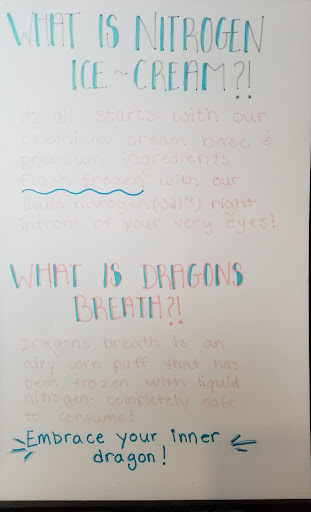 WHAT IS NITROGEN
ICE~CREAM?!
it all starts with our
premium cream base &
premium ingredients
flash frozen with our
liquid nitrogen (321°F) right
infront of your very eyes!
WHAT IS DRAGONS
BREATH?!
Dragons breath is an
airy corn puff that has
been frozen with liquid
nitrogen. completely safe
to consume!
Embrace your inner
dragon!